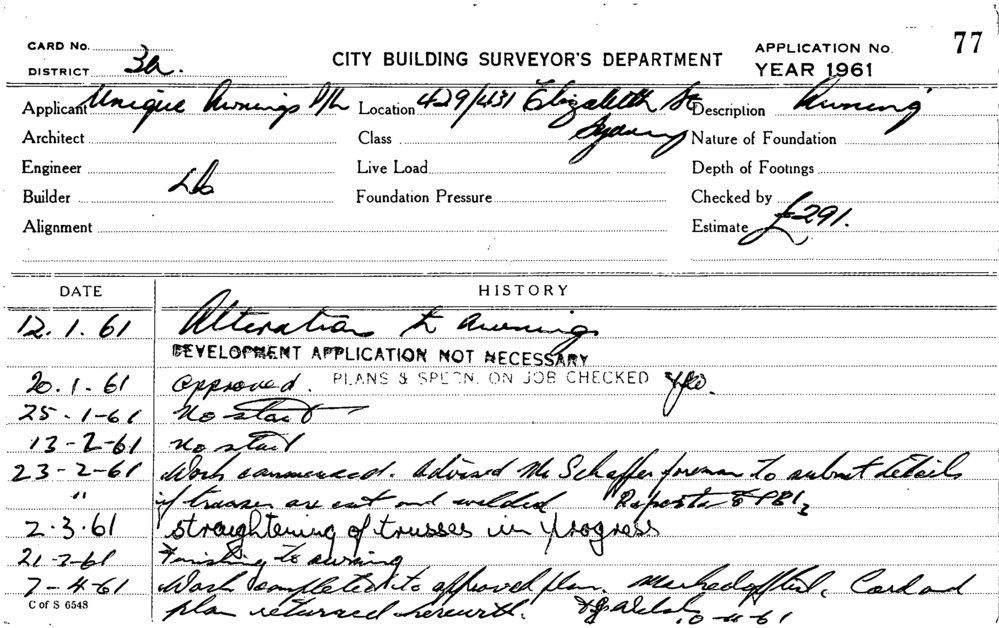 CARD No.
DISTRICT 3a.
CITY BUILDING SURVEYOR'S DEPARTMENT
APPLICATION No. 77
YEAR 1961
Applicant Unique Awnings P/L Location 429/431 Elizabeth St Description Awning
Architect Class Sydney Nature of Foundation
Engineer Live Load Depth of Footings
Builder Foundation Pressure Checked by
Alignment Estimate £291.
DATE HISTORY
12.1.61 Alteration to awnings
DEVELOPMENT APPLICATION NOT NECESSARY
20.1.61 approved. PLANS & SPECN. ON JOB CHECKED
25-1-61 No start
13-2-61 no start
23-2-61 Work commenced. advised Mr Schaffer foreman to submit details
" if trusses are cut and welded
2.3.61 straightening of trusses in progress
21-3-61 Finishing to awning
7-4-61 Work completed to approved plan. Card and
C of S 6548 plan returned herewith. 10-4-61